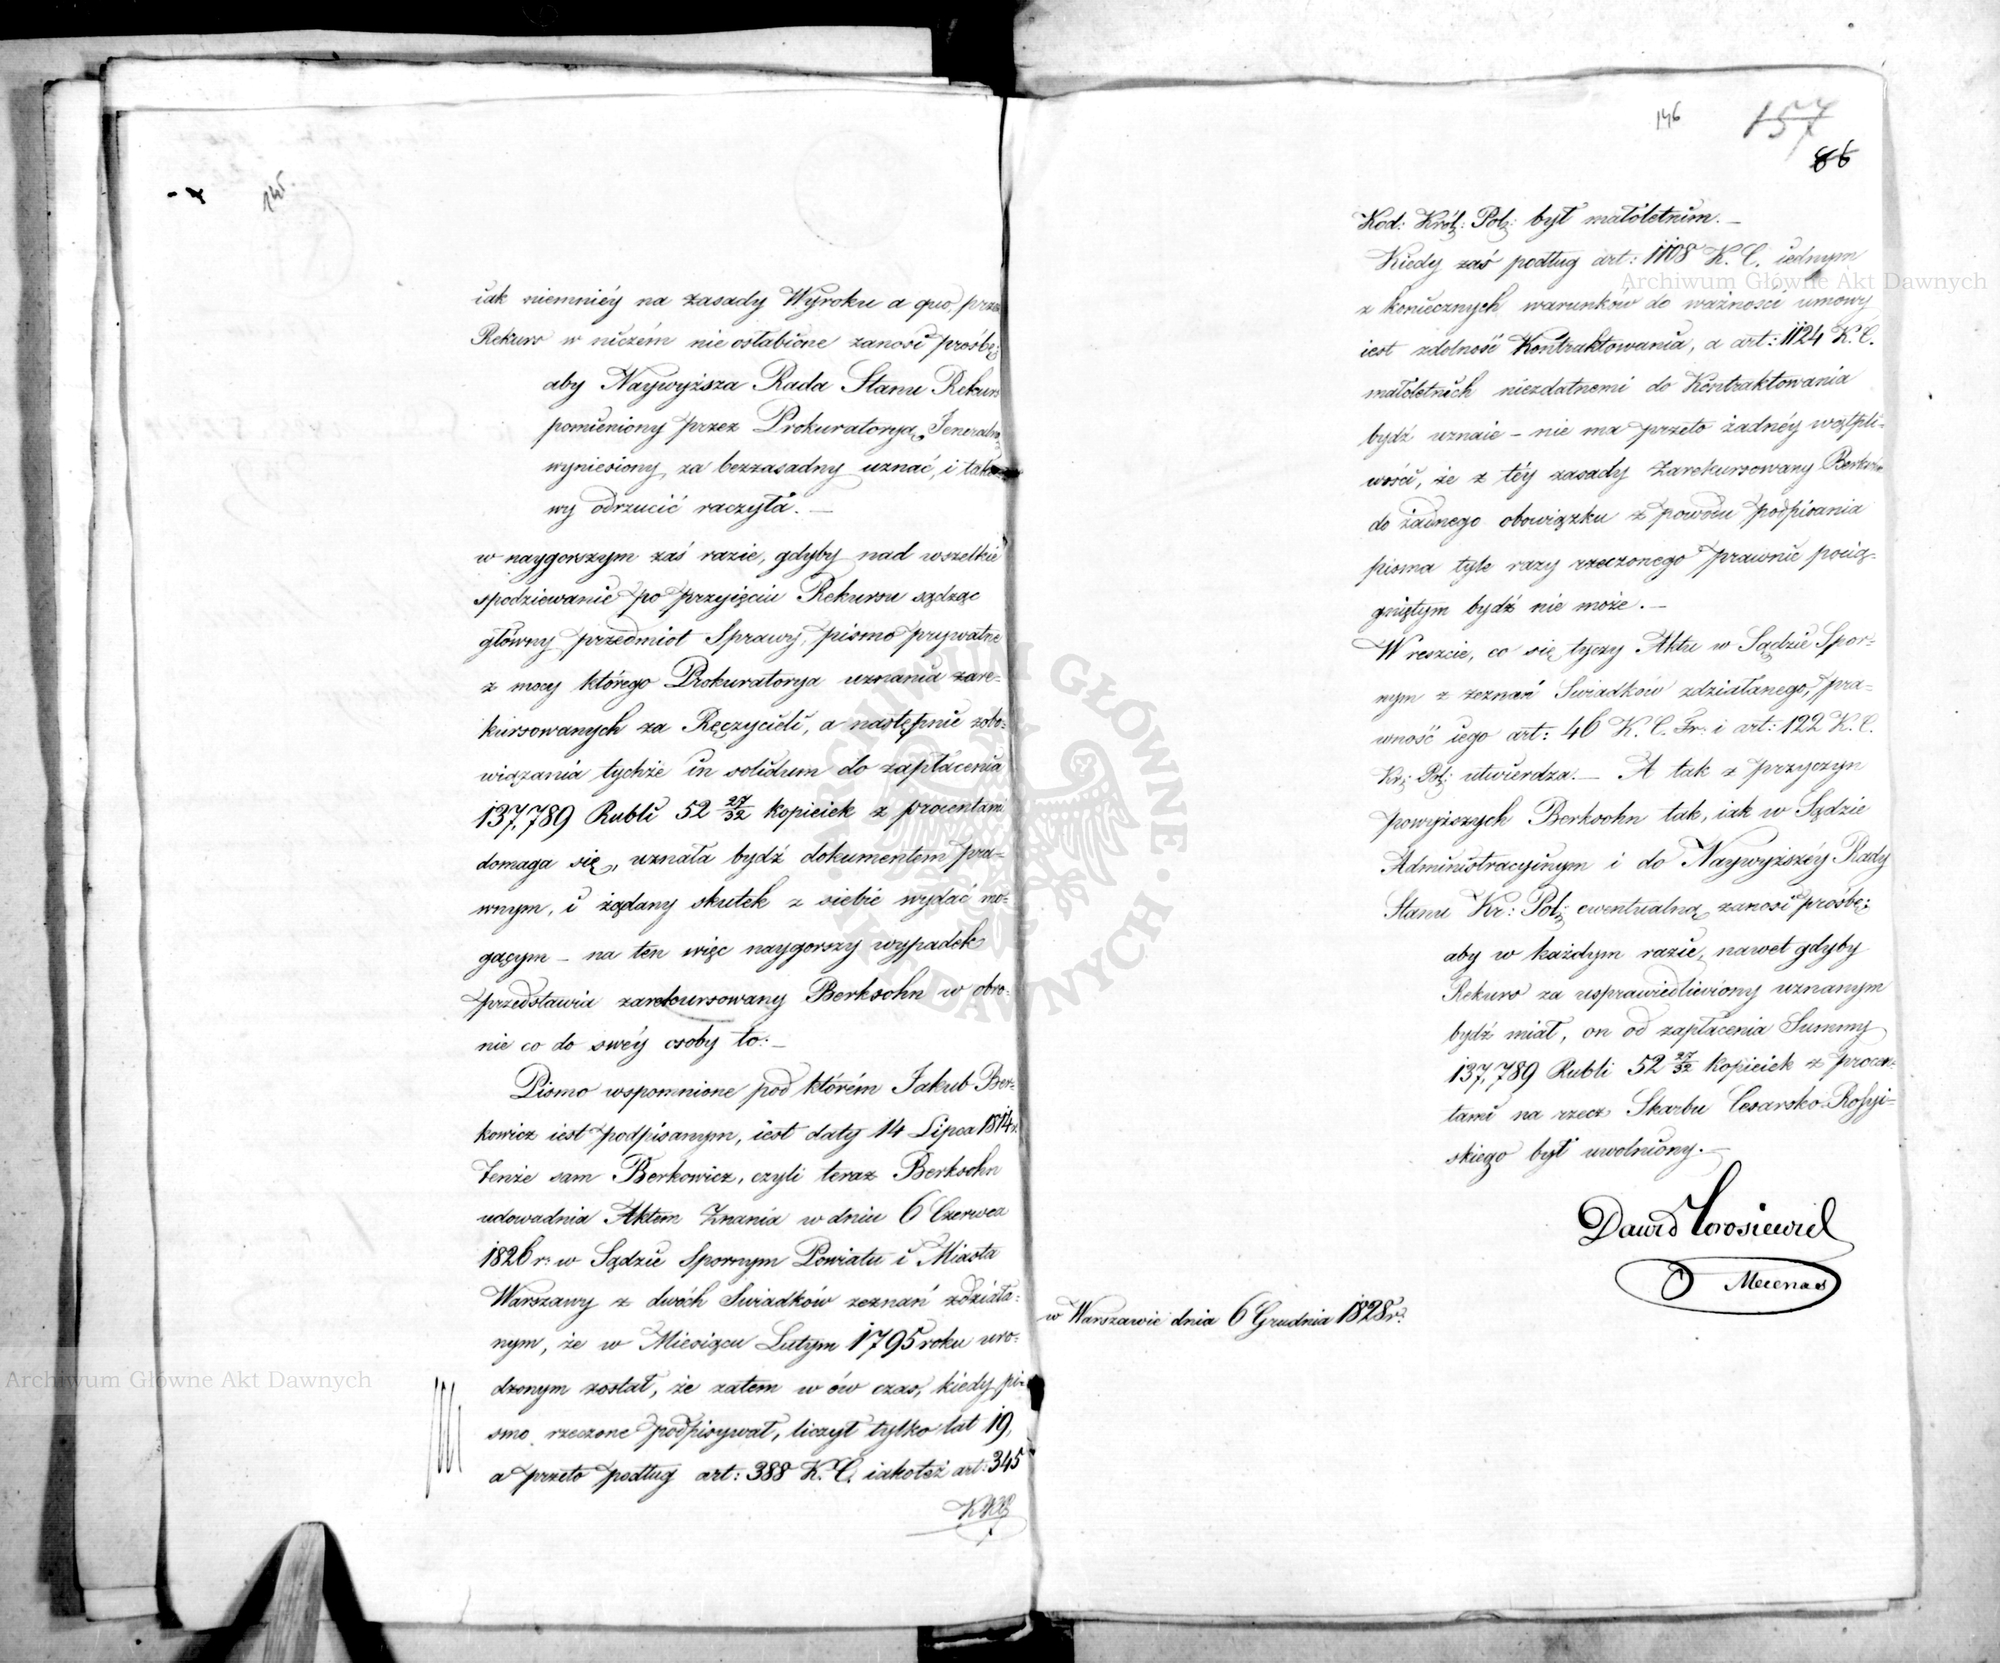 145.
iak niemniéy na zasady Wyroku a quo, przez
Rekurs w niczém nie osłabione zanosi prośbę;
aby Naywyższa Rada Stanu Rekurs
pomieniony przez Prokuratoryą Jeneralną
wyniesiony za bezzasadny uznać, i tako-
wy odrzucić raczyła. —
w naygorszym zaś razie, gdyby nad wszelkie
spodziewanie po przyięciu Rekursu sądząc
główny przedmiot Sprawy, pismo prywatne
z mocy którego Prokuratorya uznania zare-
kursowanych za Ręczycieli, a następnie zobo-
wiązania tychże in solidum do zapłacenia
137,789 Rubli 52 27/32 kopieiek z procentami
domaga się, uznała bydź dokumentem pra-
wnym, i żądany skutek z siebie wydać mo-
gącym — na ten więc naygorszy wypadek
przedstawia zarekursowany Berksohn w obro-
nie co do swéy osoby to: —
Pismo wspomnione pod którém Jakub Ber-
kowicz iest podpisanym, iest daty 14 Lipca 1814 r.
Tenże sam Berkowicz, czyli teraz Berksohn
udowadnia Aktem Znania w dniu 6 Czerwca
1826 r: w Sądzie Spornym Powiatu i Miasta
Warszawy z dwóch Swiadków zeznań zdziała-
nym, że w Miesiącu Lutym 1795 roku uro-
dzonym został, że zatem w ów czas, kiedy pi-
smo rzeczone podpisywał, liczył tylko lat 19,
a przeto podług art: 388 K. C. iakoteż art: 345
146
157
86
Kod: Król: Pol: był małoletnim. —
Kiedy zaś podług art: 1108 K. C. iednym
z koniecznych warunków do ważności umowy
iest zdolność Kontraktowania, a art: 1124 K. C.
małoletnich niezdatnemi do Kontraktowania
bydź uznaie — nie ma przeto żadnéy wątpli-
wości, że z téy zasady Zarekursowany Berksohn
do żadnego obowiązku z powodu podpisania
pisma tyle razy rzeczonego prawnie pocią-
gniętym bydź nie może. —
W reszcie, co się tyczy Aktu w Sądzie Spor-
nym z zeznań Swiadków zdziałanego, pra-
wność iego art: 46 K. C. Fr: i art: 122 K. C.
Kr: Pol: utwierdza. — A tak z przyczyn
powyższych Berksohn tak, iak w Sądzie
Administracyinym i do Naywyższéy Rady
Stanu Kr: Pol: ewentualną zanosi prośbę;
aby w każdym razie, nawet gdyby
Rekurs za usprawiedliwiony uznanym
bydź miał, on od zapłacenia Summy
137,789 Rubli 52 27/32 kopieiek z procen-
tami na rzecz Skarbu Cesarsko-Rossyi-
skiego był uwolniony. —
Dawid
Mecenas
w Warszawie dnia 6 Grudnia 1828 r.
Archiwum Główne Akt Dawnych
Archiwum Główne Akt Dawnych
ARCHIWUM GŁÓWNE AKT DAWNYCH